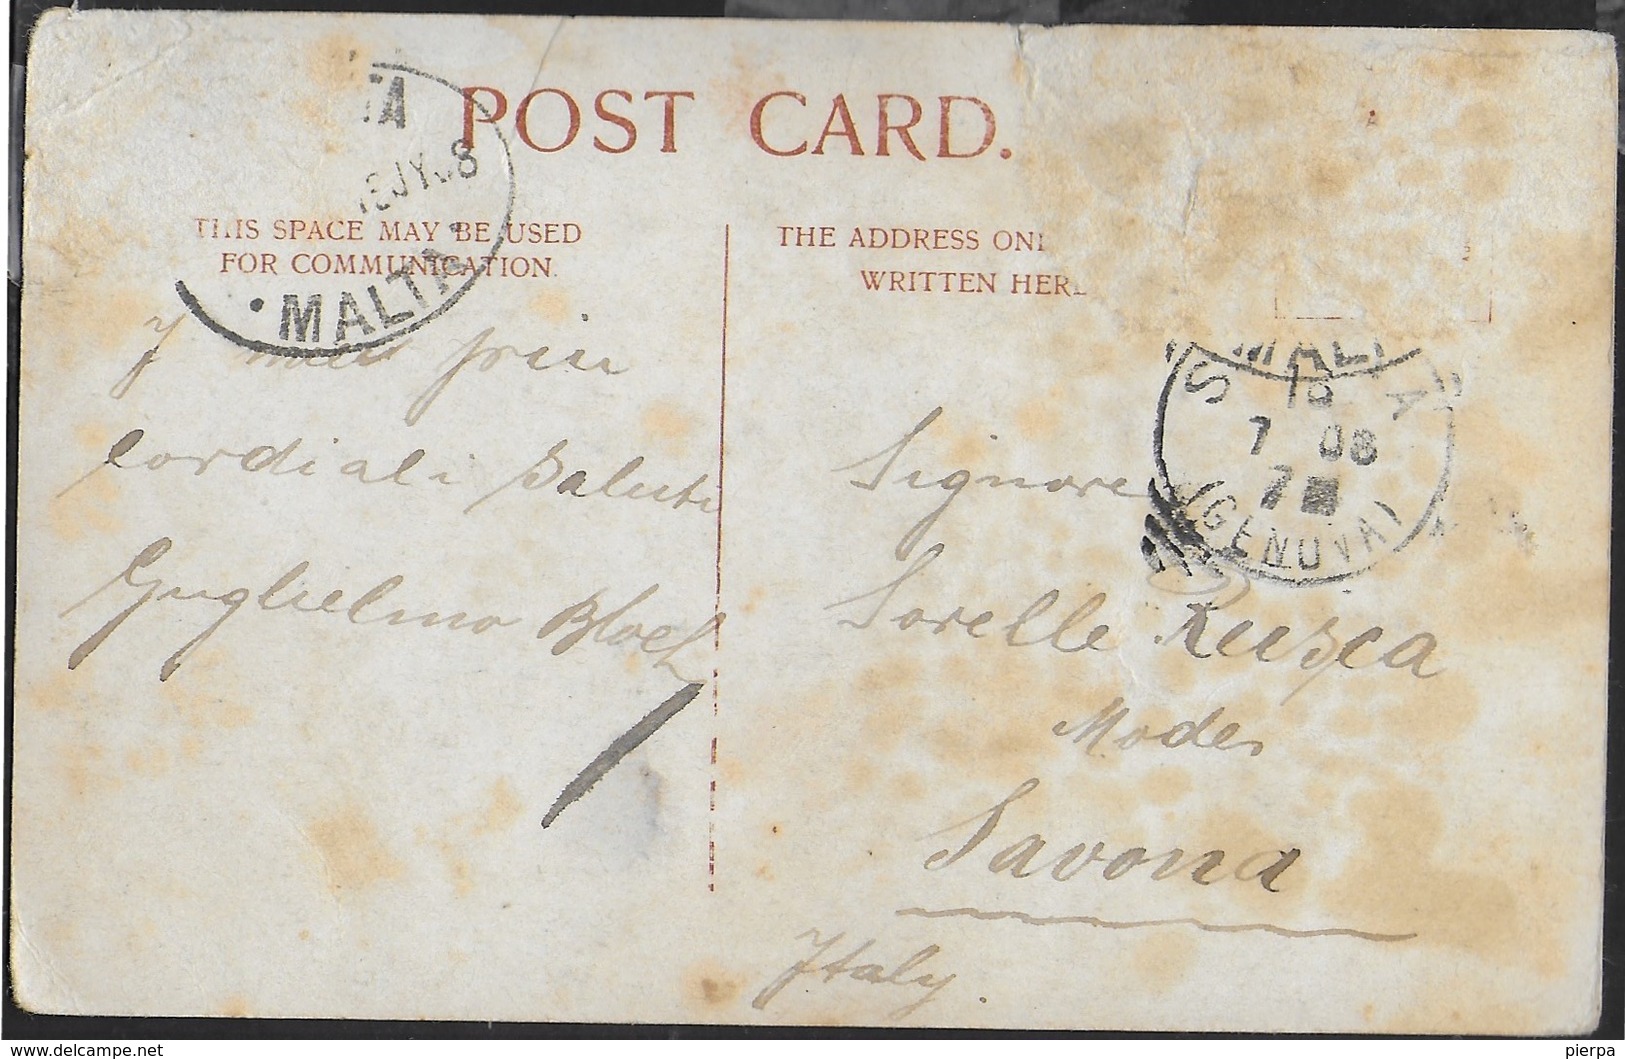 POST CARD.
MALTA
THIS SPACE MAY BE USED
FOR COMMUNICATION.
THE ADDRESS ONL
WRITTEN HERE
MALTA
S A
18
7 08
7
(GENOVA)
I miei
cordiali saluti
Guglielmo Bloch
Signore
Sorelle Rusca
Modes
Savona
Italy.
pierpa
www.delcampe.net